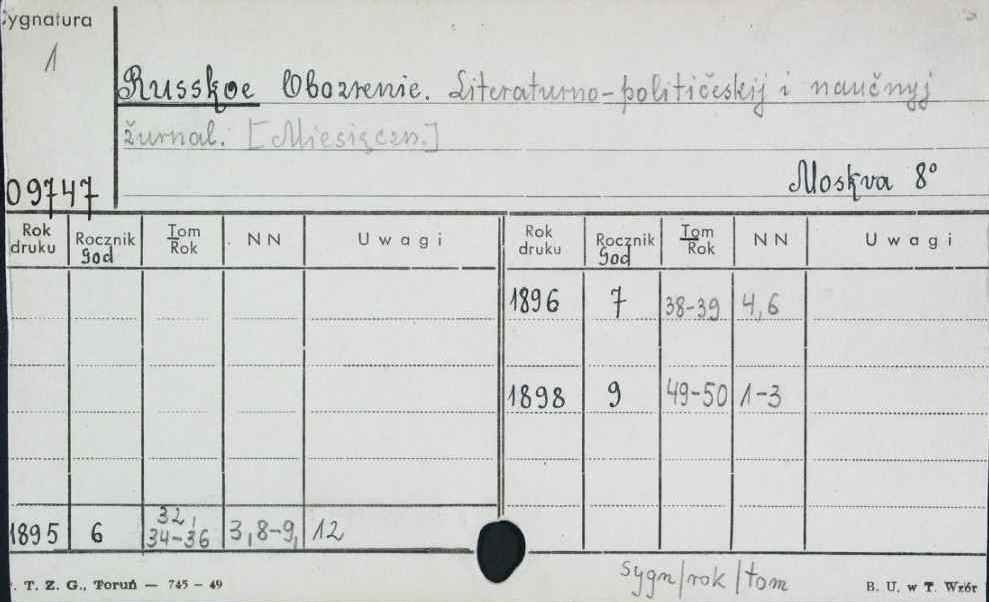 Sygnatura
1
Russkoe Obozrenie. Literaturno-političeskij i naučnyj
žurnal. [Miesięczn.]
09747
Moskva 8°
Rok druku Rocznik God Tom Rok NN Uwagi Rok druku Rocznik God Tom Rok NN Uwagi
1896 7 38-39 4,6
1898 9 49-50 1-3
1895 6 32, 34-36 3,8-9, 12
sygn/rok/tom
T. Z. G., Toruń — 745 – 49
B. U. w T. Wzór